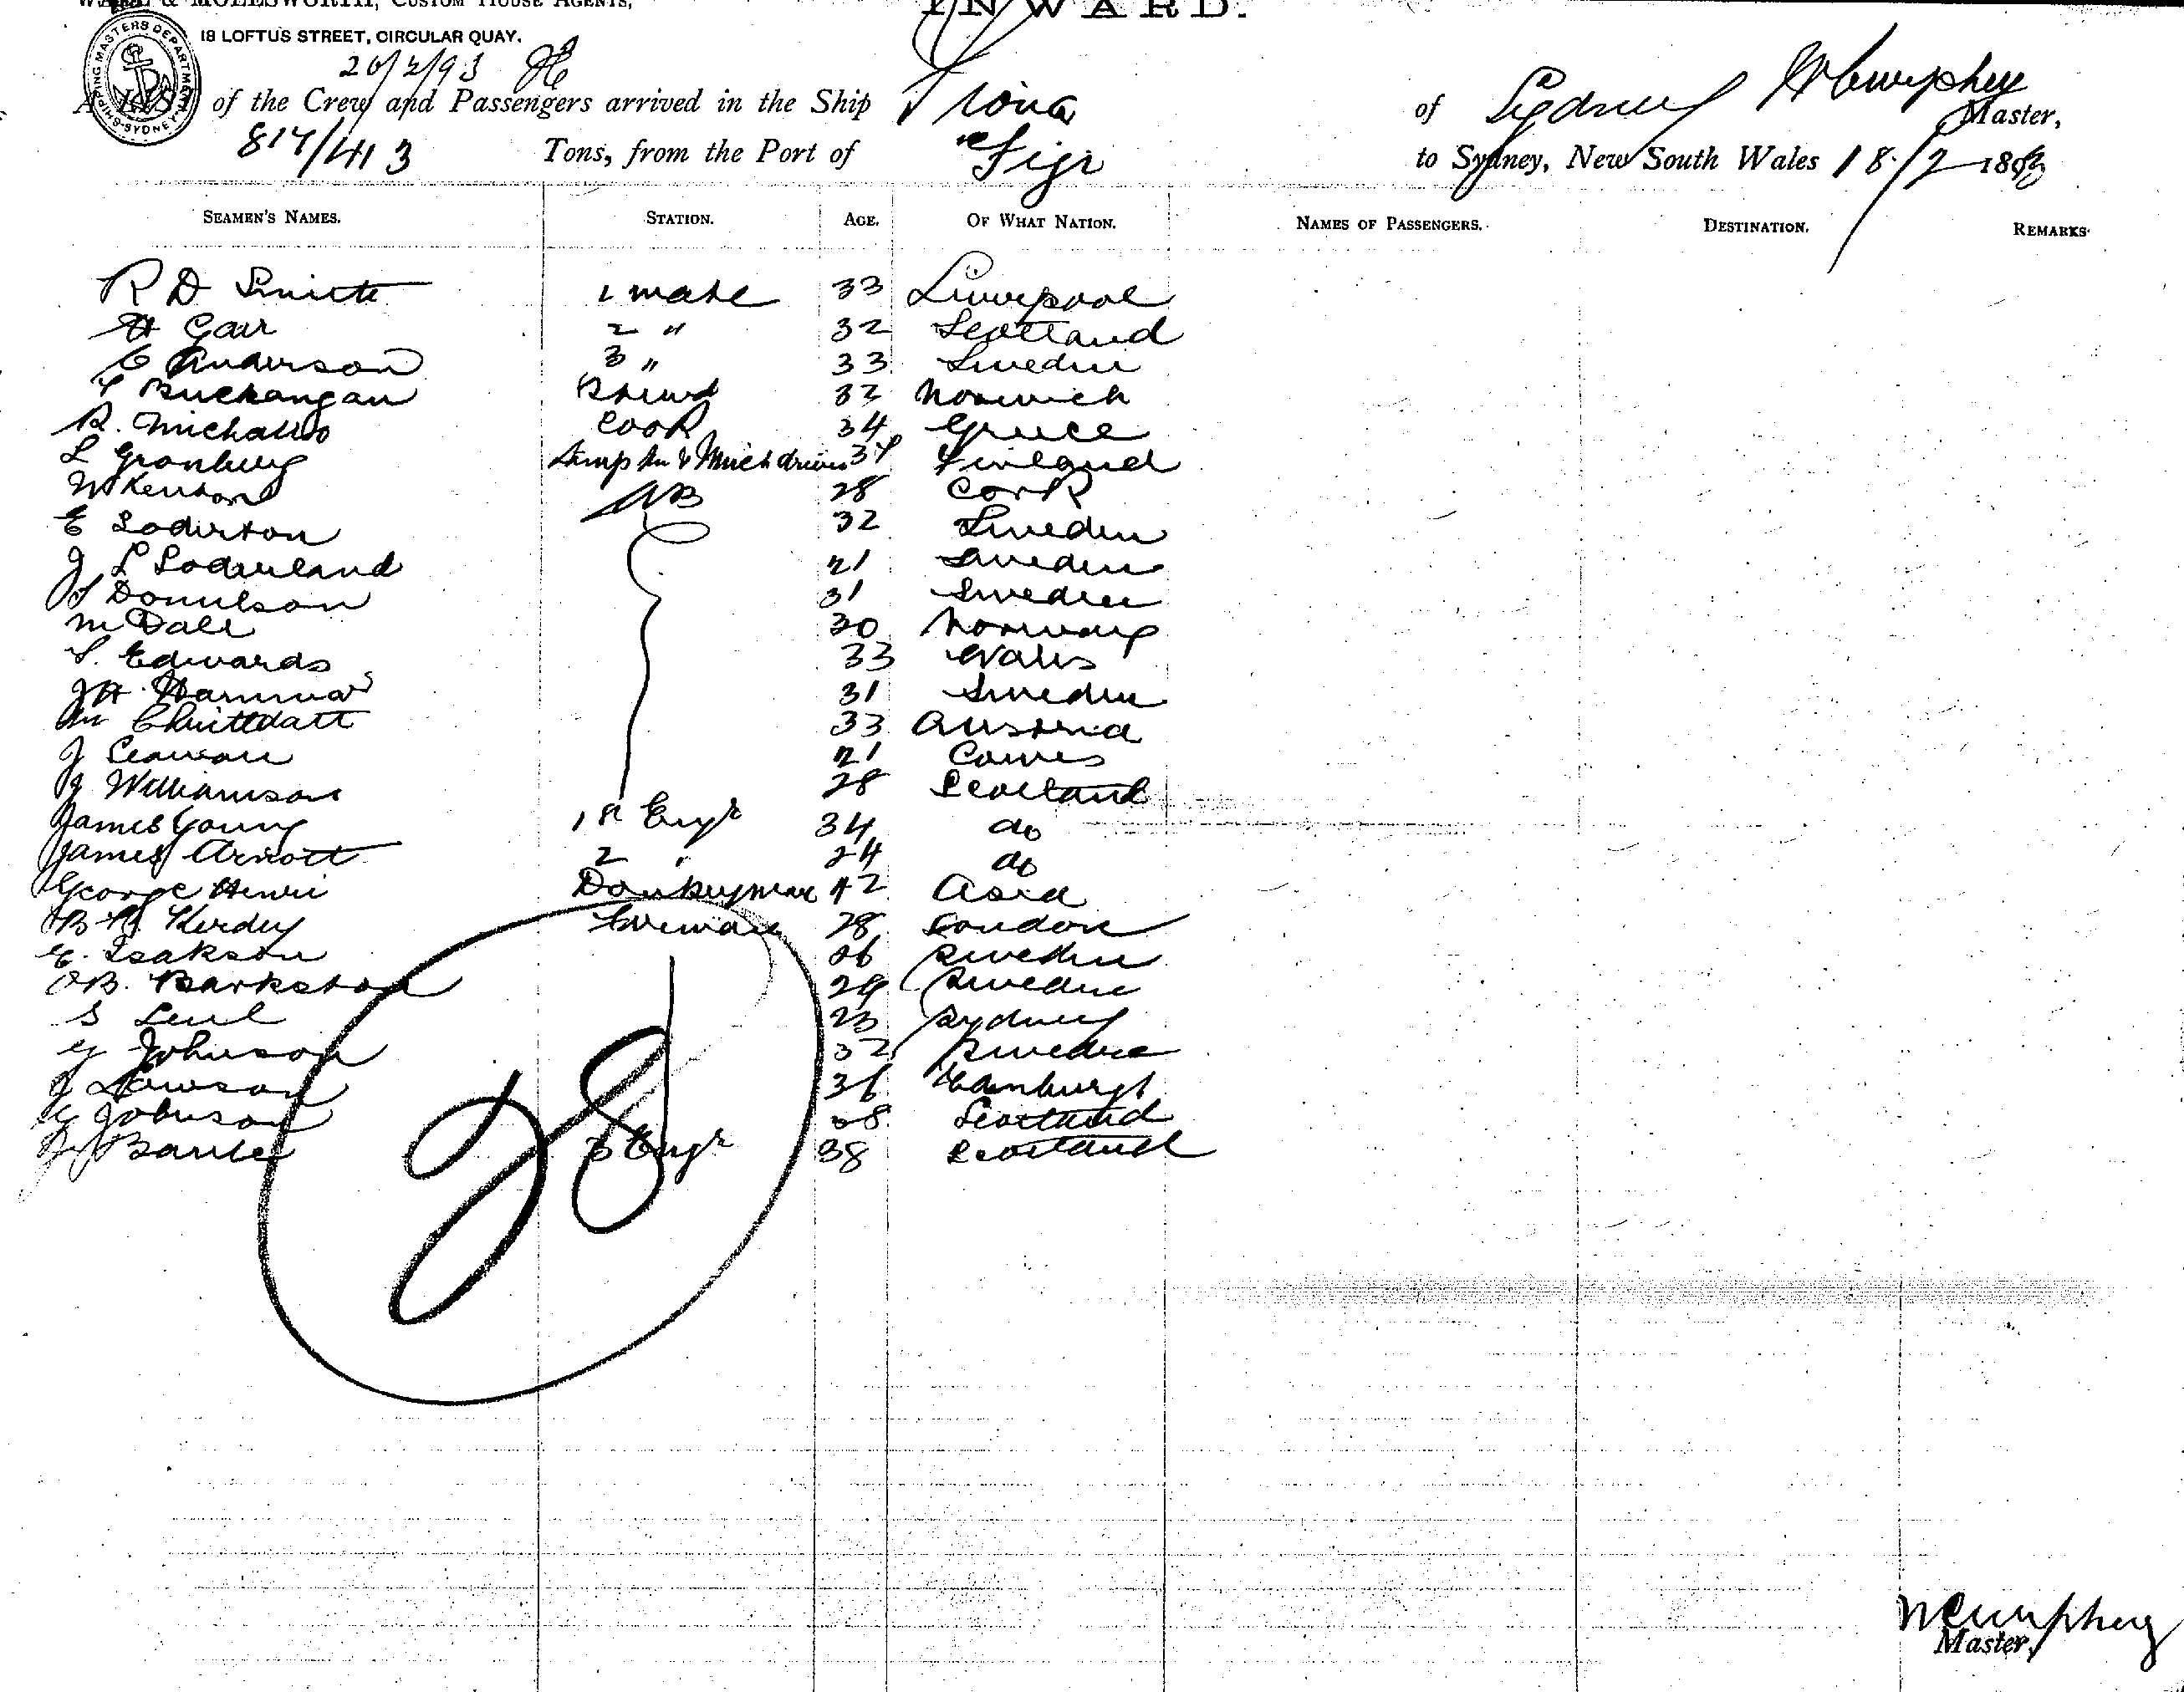 & MOLESWORTH, CUSTOM HOUSE AGENTS,
INWARD.
18 LOFTUS STREET, CIRCULAR QUAY.
SHIPPING MASTERS DEPARTMENT SYDNEY
20/2/93
A LIST of the Crew and Passengers arrived in the Ship Fiona of Sydney Master,
817/413 Tons, from the Port of Fiji to Sydney, New South Wales 18/2 1893
SEAMEN'S NAMES. STATION. AGE. OF WHAT NATION. NAMES OF PASSENGERS. DESTINATION. REMARKS.
R D Smith 1 mate 33 Liverpool
H Gair 2 " 32 Scotland
C Anderson 3 " 33 Sweden
Buchangan 32 Norwich
R. Cook 34 Greece
L Gronberg Finland
W Kenson AB 28 Cork
E Soderton 32 Sweden
J L Soderland 21 Sweden
Donnelson 31 Sweden
M Dall 30 Norway
S. Edwards 33 Wales
J H 31 Sweden
33 Austria
J Seaman 21 Cowes
J Williamson 28 Scotland
James Young 1st Engr 34 do
James Arnott 2 " 24 do
George Henri Donkeyman 42 Asia
Fireman 28 London
E. Isakson 26 Sweden
O B. Barkston 29 Sweden
S 23 Sydney
G Johnson 32 Sweden
J Lawson 36 Edinburgh
G Johnson 28 Scotland
3 Engr 38 Scotland
28
Master,